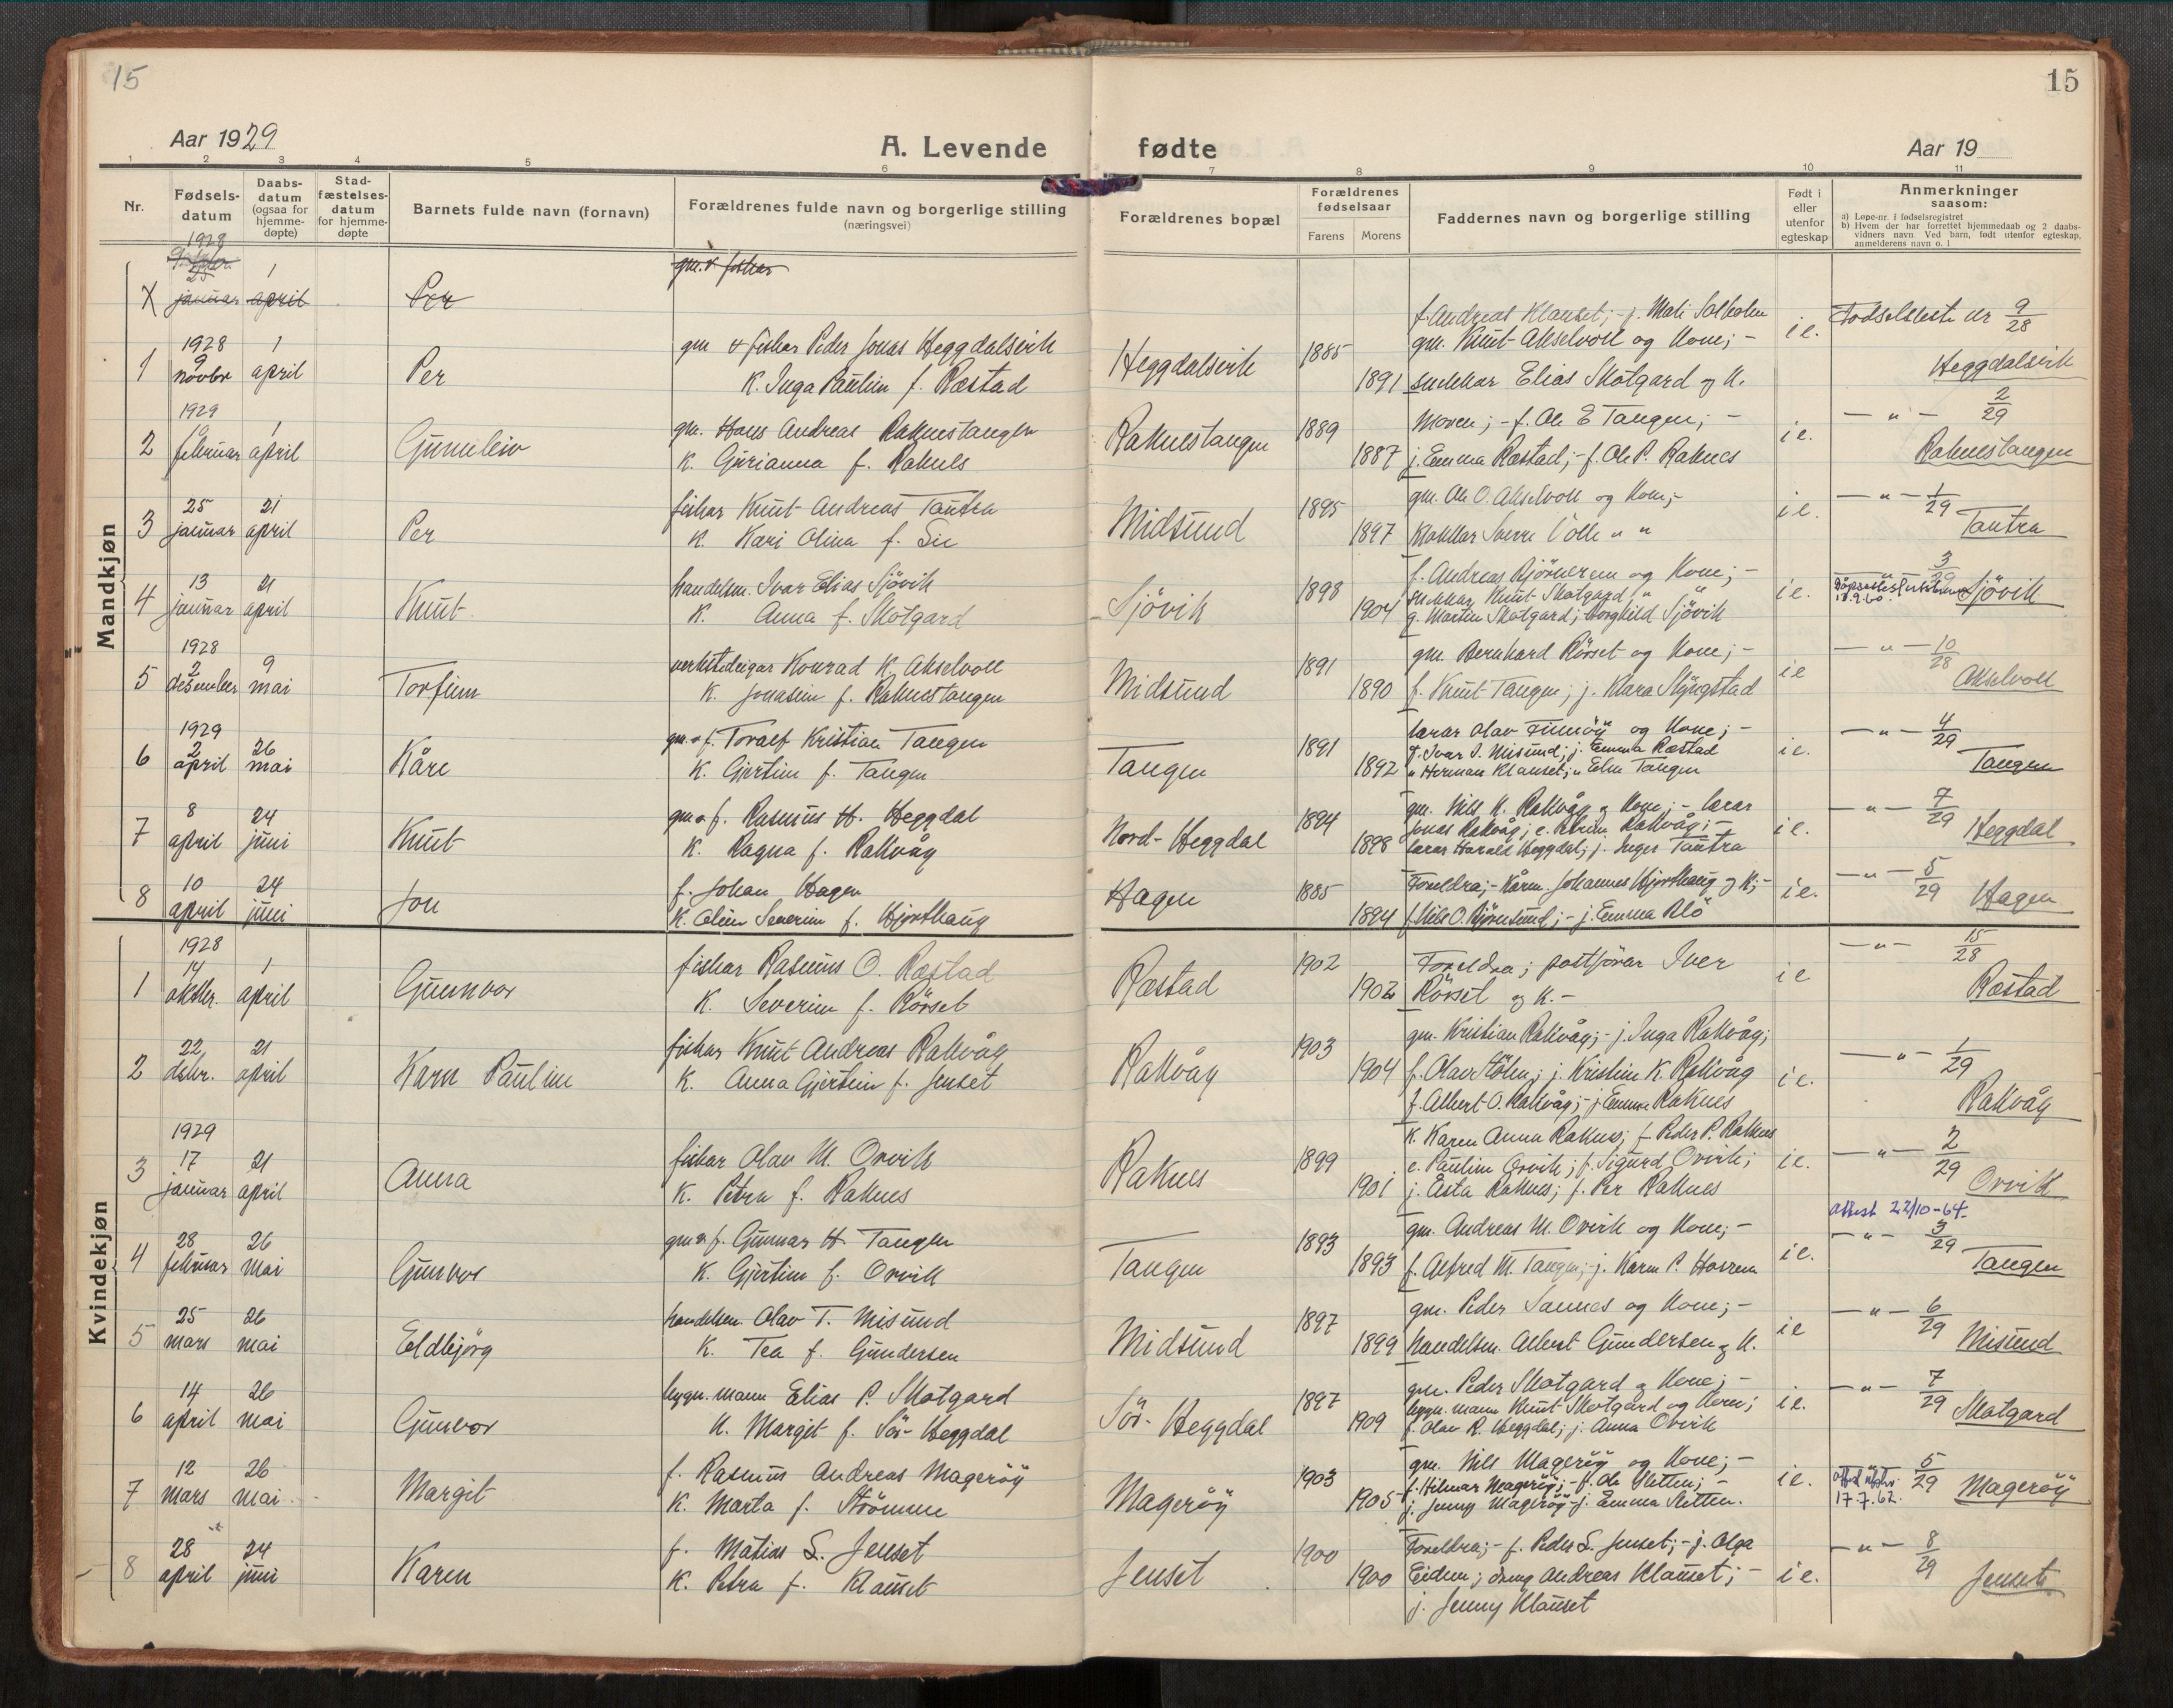 15
15
Aar 1929
A. Levende fødte
Aar 19
1 2 3 4 5 6 7 8 9 10 11
Nr.
Fødsels-datum
Daabs-datum (ogsaa for hjemme-døpte)
Stad-fæstelses-datum for hjemme-døpte
Barnets fulde navn (fornavn)
Forældrenes fulde navn og borgerlige stilling (næringsvei)
Forældrenes bopæl
Forældrenes fødselsaar
Farens Morens
Faddernes navn og borgerlige stilling
Født i eller utenfor egteskap
Anmerkninger saasom:
a) Løpe-nr. i fødselsregistret
b) Hvem der har forrettet hjemmedaab og 2 daabs-vidners navn. Ved barn, født utenfor egteskap, anmelderens navn o. l
Mandkjøn
1928
25 1 gm. & fiskar
X januar april Per
f. Andreas Klauset; - j. Mali Solholm
1928 1 gm & fiskar Peder Jonas Heggdalsvik 1885 gm. Knut Akselvoll og Kone; - i e. Fødselsliste nr 9/28
1 9 novbr april Per K. Inga Paulin f. Ræstad Heggdalsvik 1891 snekkar Elias Skotgard og K. Heggdalsvik
1929 1 gm. Hans Andreas Raknestangen 1889 Moren; - f. Ole E Tangen; - - " - 2/29
2 februar april Gunnleiv K. Gurianna f. Raknes Raknestangen 1887 j. Emma Ræstad; - f. Ole P. Raknes i e. Raknestangen
25 21 fiskar Knut Andreas Tautra 1895 gm. Ole O. Akselvoll og Kone; - - " - 1/29
3 januar april Per K. Kari Olina f. Sie Midsund 1897 Sverre Volle " " i e. Tautra
13 21 handelsm. Ivar Elias Sjövik 1898 f. Andreas Bjørnerem og Kone; - 3/29
4 januar april Knut K. Anna f. Skotgard Sjövik 1904 snekkar Knut Skotgard " " i e. Sjövik
g. Martin Skotgard; Borghild Sjövik 18.9.60.
1928
2 9 Konrad K. Akselvoll 1891 gm. Bernhard Rörset og Kone; - - " - 10/28
5 desember mai Torfinn K. Jonasine f. Raknestangen Midsund 1890 f. Knut Tangen; j. Klara Slyngstad i e Akselvoll
1929
2 26 gm. & f. Toralf Kristian Tangen 1891 lærar Olav Finnöy og Kone; - - " - 4/29
6 april mai Kåre K. Gjertine f. Tangen Tangen 1892 f. Ivar I. Misund; j. Emma Ræstad i e. Tangen
" Herman Klauset; " Elin Tangen
8 24 gm & f. Rasmus H. Heggdal 1894 gm. Nils K. Rakvåg og Kone; - lærar - " - 7/29
7 april juni Knut K. Ragna f. Rakvåg Nord-Heggdal 1898 Jonas Rakvåg; Rakvåg; - i e. Heggdal
lærar Harald Heggdal; j. Inger Tautra
10 24 f. Johan Hagen 1885 Foreldra; - Johannes Hjorthaug og K; - - " - 5/29
8 april juni Jon K. Oline Severine f. Hjorthaug Hagen 1894 f. Nils O. Bjørnsund; - j. Emma Blö i e. Hagen
Kvindekjøn
1928
14 1 fiskar Rasmus O. Ræstad 1902 Foreldra; postförar Iver - " - 15/28
1 oktbr. april Gunnvor K. Severine f. Rörset Ræstad 1902 Rörset og K. - i e Ræstad
22 21 fiskar Knut Andreas Rakvåg 1903 gm. Kristian Rakvåg; - j. Inga Rakvåg; - " - 1/29
2 desbr. april Karn Pauline K. Anna Gjertine f. Jenset Rakvåg 1904 f. Olav Stölen; j. Kristine K. Rakvåg i e. Rakvåg
f. Albert O. Rakvåg; - j Emma Raknes
1929 K. Karen Anna Raknes; f. Peder P. Raknes
17 21 fiskar Olav M. Orvik 1899 e. Pauline Orvik; f. Sigurd Orvik; - " - 2/29
3 januar april Anna K. Petra f. Raknes Raknes 1901 j. Åsta Raknes; f. Per Raknes i e. Orvik
attest 22/10-64
28 26 gm & f. Gunnar H. Tangen 1893 gm. Andreas M. Orvik og Kone; - - " - 3/29
4 februar mai Gunvor K. Gjertine f. Orvik Tangen 1893 f. Alfred M. Tangen; - j. Karen P. Hosrem i e. Tangen
25 26 handelsm. Olav T. Misund 1897 gm. Peder Sannes og Kone; - - " - 6/29
5 mars mai Eldbjörg K. Tea f. Gundersen Midsund 1899 handelsm. Albert Gundersen og K. i e Misund
14 26 bygn. mann Elias P. Skotgard 1897 gm. Peder Skotgard og Kone; - - " - 7/29
6 april mai Gunvor K. Margit f. Sör-Heggdal Sör-Heggdal 1909 bygn. mann Knut Skotgard og Kone; i e. Skotgard
f. Olav R. Heggdal; j. Anna Orvik
12 26 f. Rasmus Andreas Mageröy 1903 gm. Nils Mageröy og Kone; - 5/29
7 mars mai Margit K. Marta f. Strömme Mageröy 1905 f. Hilmar Mageröy; - f. Ole Sletten; - i e. 17.7.62. Mageröy
j. Jenny Mageröy - j. Emma Sletten.
28 24 f. Matias L. Jenset 1900 Foreldra; - f. Peder L. Jenset; - j. Olga - " - 8/29
8 april juni Karen K. Petra f. Klauset Jenset 1900 Eidem; dreng Andreas Klauset; - i e. Jenset
j. Jenny Klauset